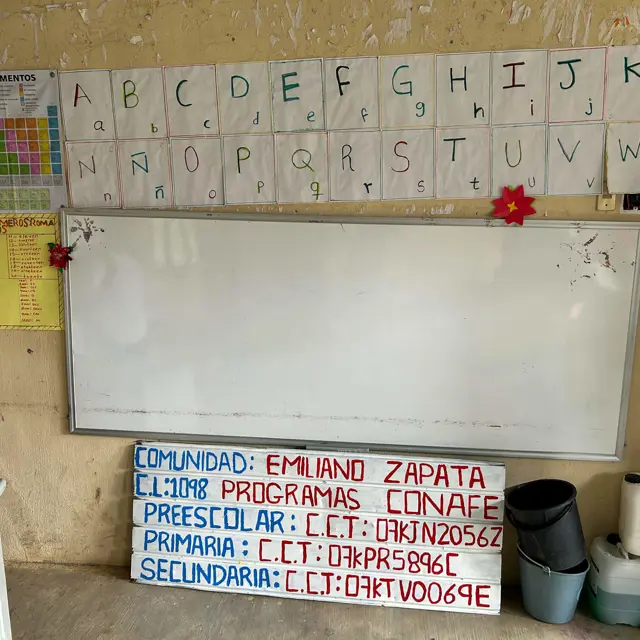 MENTOS
A a B b C c D d E e F f G g H h I i J j K
N n Ñ ñ O o P p Q q R r S s T t U u V v W
MEROS ROMA
COMUNIDAD: EMILIANO ZAPATA
C.L:1098 PROGRAMAS CONAFE
PREESCOLAR: C.C.T: 07KJN2056Z
PRIMARIA: C.C.T: 07KPR5896C
SECUNDARIA: C.C.T: 07KTV0069E